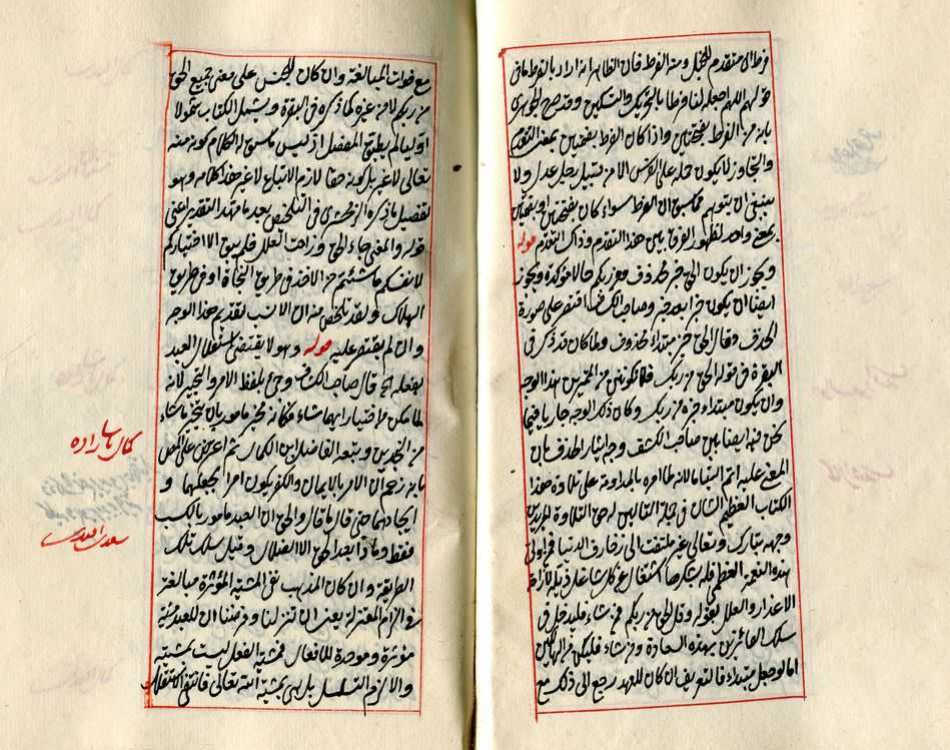 فرطا اي متقدم للخيل ومنه الفرط فان الظاهر انه اراد بالفرط ما في
قولهم اللهم اجعله لنا فرطا بالتحريك والتسكين وقد صرح الجوهري
بانه من الفرط بفتحتين واذا كان الفرط بفتحتين بمعنى التقدم
والتجاوز لا يكون حمله على الامر الا من قبيل رجل عدل ولا
ينبغي ان يتوهم ان الفرط سواء كان بفتحتين او بضمتين
بمعنى واحد لظهور الفرق بين هذا التقدم وذاك التقدم قوله
ويجوز ان يكون الحق خبر محذوف و من ربكم حالا مؤكدة ويجوز
ايضا ان يكون خبرا بعد خبر وصاحب الكشاف اقتصر على صورة
الحذف وقال الحق خبر مبتداء محذوف ولما كان قد ذكر في
البقرة في قوله الحق من ربك فلا تكونن من الممترين هذا الوجه
وان يكون مبتداء خبره من ربك وكان ذلك الوجه جاريا فيما
نحن فيه ايضا بين صاحب الكشف وجه ايثار الحذف بان
المعنى عليه اتم التياما لانه لما امره بالمداومة على تلاوة هذا
الكتاب العظيم الشان في جملة التالين له حق التلاوة المريدين
وجهه تبارك وتعالى غير ملتفت الى زخارف الدنيا فمن اوتي
هذه النعمة العظمى فله بشكرها اشتغال عن كل شاغل ذيله لازاحة
الاعذار والعلل بقوله وقل الحق من ربكم فمن شاء فليدخل في
سلك الفائزين بهذه السعادة ومن شاء فليكن من الهالكين
اما لو جعل مبتداء فالتعريف ان كان للعهد رجع الى ذلك مع
مع فوات المبالغة وان كان للجنس على معنى جميع الحق
من ربكم لا من غيره كما ذكره في البقرة ويشمل الكتاب شمولا
اوليا لم يطبق المفصل اذ ليس ما سيق له الكلام كونه منه
تعالى لا غير بل كونه حقا لازم الاتباع لا غير هذا كلامه وهو
تفصيل ما ذكره الزمخشري في التلخيص بعد ما مهد التقدير اعني
قوله والمعنى جاء الحق وزاحت العلل فلم يبق الا اختياركم
لانفسكم ما شئتم من الاخذ في طريق النجاة او في طريق
الهلاك وقد تلخص منه ان الانسب تقديم هذا الوجه
وان لم يقتصر عليه قوله وهو لا يقتضي استقلال العبد
بفعله الخ قال صاحب الكشاف وجئ بلفظ الامر والتخيير لانه
لما مكن من اختيار ايهما شاء فكانه مخير مامور بان يتخير ما شاء
من النجدين وتبعه الفاضل ابن الكمال ثم اعترض على المص
بانه زعم ان الامر بالايمان والكفر يكون امرا بجعلهما و
ايجادهما حتى قال ما قال والحق ان العبد مامور بالكسب
فقط وماذا بعد الحق الا الضلال وقيل سلك تلك
الطريقة وان كان المذهب نفي المشية المؤثرة مبالغة
في الزام المعتزلة يعني ان تنزلنا وفرضنا ان للعبد مشية
مؤثرة وموجدة للافعال فمشية الفعل ليست بمشيته
والا لزم التسلسل بل هي بمشية الله تعالى فانتفى الاستقلال
كمال پاشا زاده
سعدى افندى